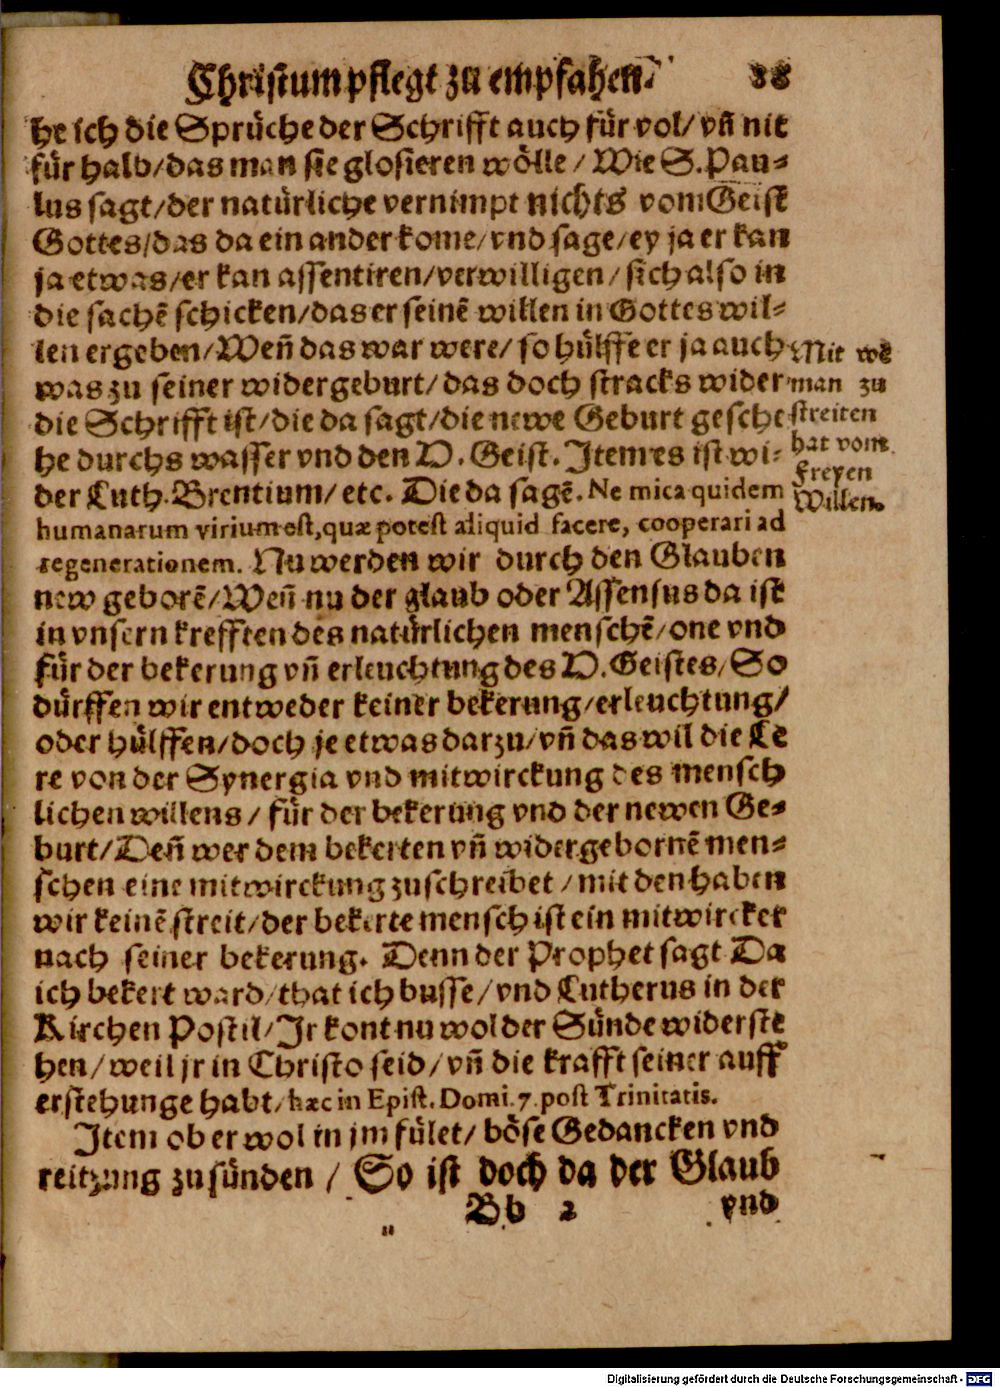 Christum pflegt zu empfahen. 88
he ich die Sprüche der Schrifft auch für vol/ vñ nit
für halb/das man sie glosieren wölle / Wie S. Pau-
lus sagt/der natürliche vernimpt nichts vom Geist
Gottes/das da ein ander kome/vnd sage/ey ja er kan
ja etwas/er kan assentiren/verwilligen/ sich also in
die sachē schicken/das er seinē willen in Gottes wil-
len ergeben/Weñ das war were/ so hülffe er ja auch
was zu seiner widergeburt/das doch stracks wider
die Schrifft ist/die da sagt/die newe Geburt gesche
he durchs wasser vnd den H. Geist. Item es ist wi-
der Luth. Brentium/ etc. Die da sagē. Ne mica quidem
humanarum virium est, quæ potest aliquid facere, cooperari ad
regenerationem. Nu werden wir durch den Glauben
new geborē/Weñ nu der glaub oder Assensus da ist
in vnsern krefften des natürlichen menschē/one vnd
für der bekerung vñ erleuchtung des H. Geistes/ So
dürffen wir entweder keiner bekerung/erleuchtung/
oder hülffen/doch je etwas darzu/vñ das wil die Le
re von der Synergia vnd mitwirckung des mensch
lichen willens / für der bekerung vnd der newen Ge-
burt/Deñ wer dem bekerten vñ widergebornē men-
schen eine mitwirckung zuschreibet / mit den haben
wir keinē streit/der bekerte mensch ist ein mitwircker
nach seiner bekerung. Denn der Prophet sagt Da
ich bekert ward/that ich busse/ vnd Lutherus in der
Kirchen Postil/Ir kont nu wol der Sünde widerste
hen/ weil jr in Christo seid/ vñ die krafft seiner auff
erstehunge habt/ hæc in Epist. Domi. 7. post Trinitatis.
Item ob er wol in jm fület/ böse Gedancken vnd
reitzung zu sünden / So ist doch da der Glaub
Bb 2 vnd
Mit wē
man zu
streiten
hat vom
Freyen
Willen.
Digitalisierung gefördert durch die Deutsche Forschungsgemeinschaft - DFG